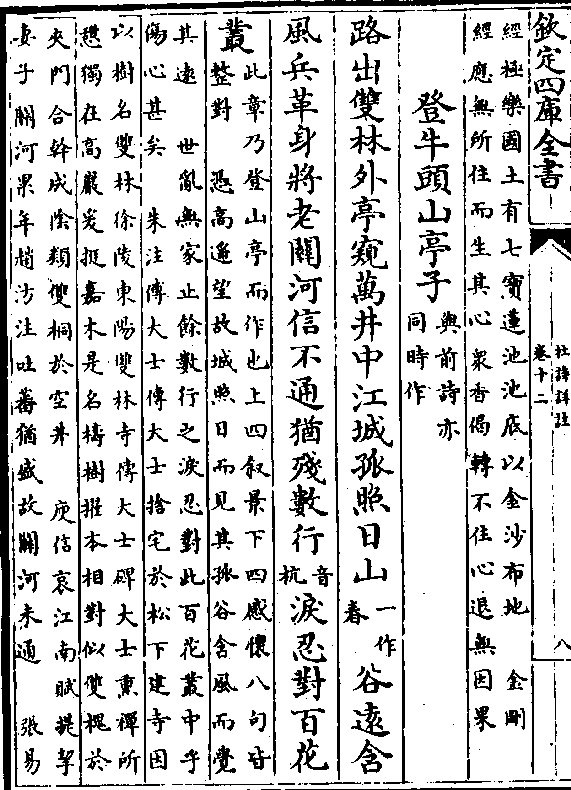 欽定四庫全書
杜詩詳註
卷十二
八
經極樂國土有七寶蓮池池底以金沙布地　金剛
經應無所住而生其心衆香偈轉不住心退無因果
登牛頭山亭子
與前詩亦
同時作
路出雙林外亭窺萬井中江城孤照日山
一作
春
谷遠含
風兵革身將老關河信不通猶殘數行
音
杭
淚忍對百花
叢
此章乃登山亭而作也上四叙景下四感懷八句皆
整對　憑高遥望故城照日而見其孤谷含風而覺
其遠　世亂無家止餘數行之淚忍對此百花叢中乎
傷心甚矣　朱注傅大士傅大士捨宅於松下建寺因
以樹名雙林徐陵東陽雙林寺傅大士碑大士熏禪所
憇獨在高巖爰挺嘉木是名檮樹擢本相對似雙槐於
夾門合幹成陰類雙桐於空井　庾信哀江南賦提挈
妻子關河累年趙汸注吐蕃猶盛故關河未通　張易